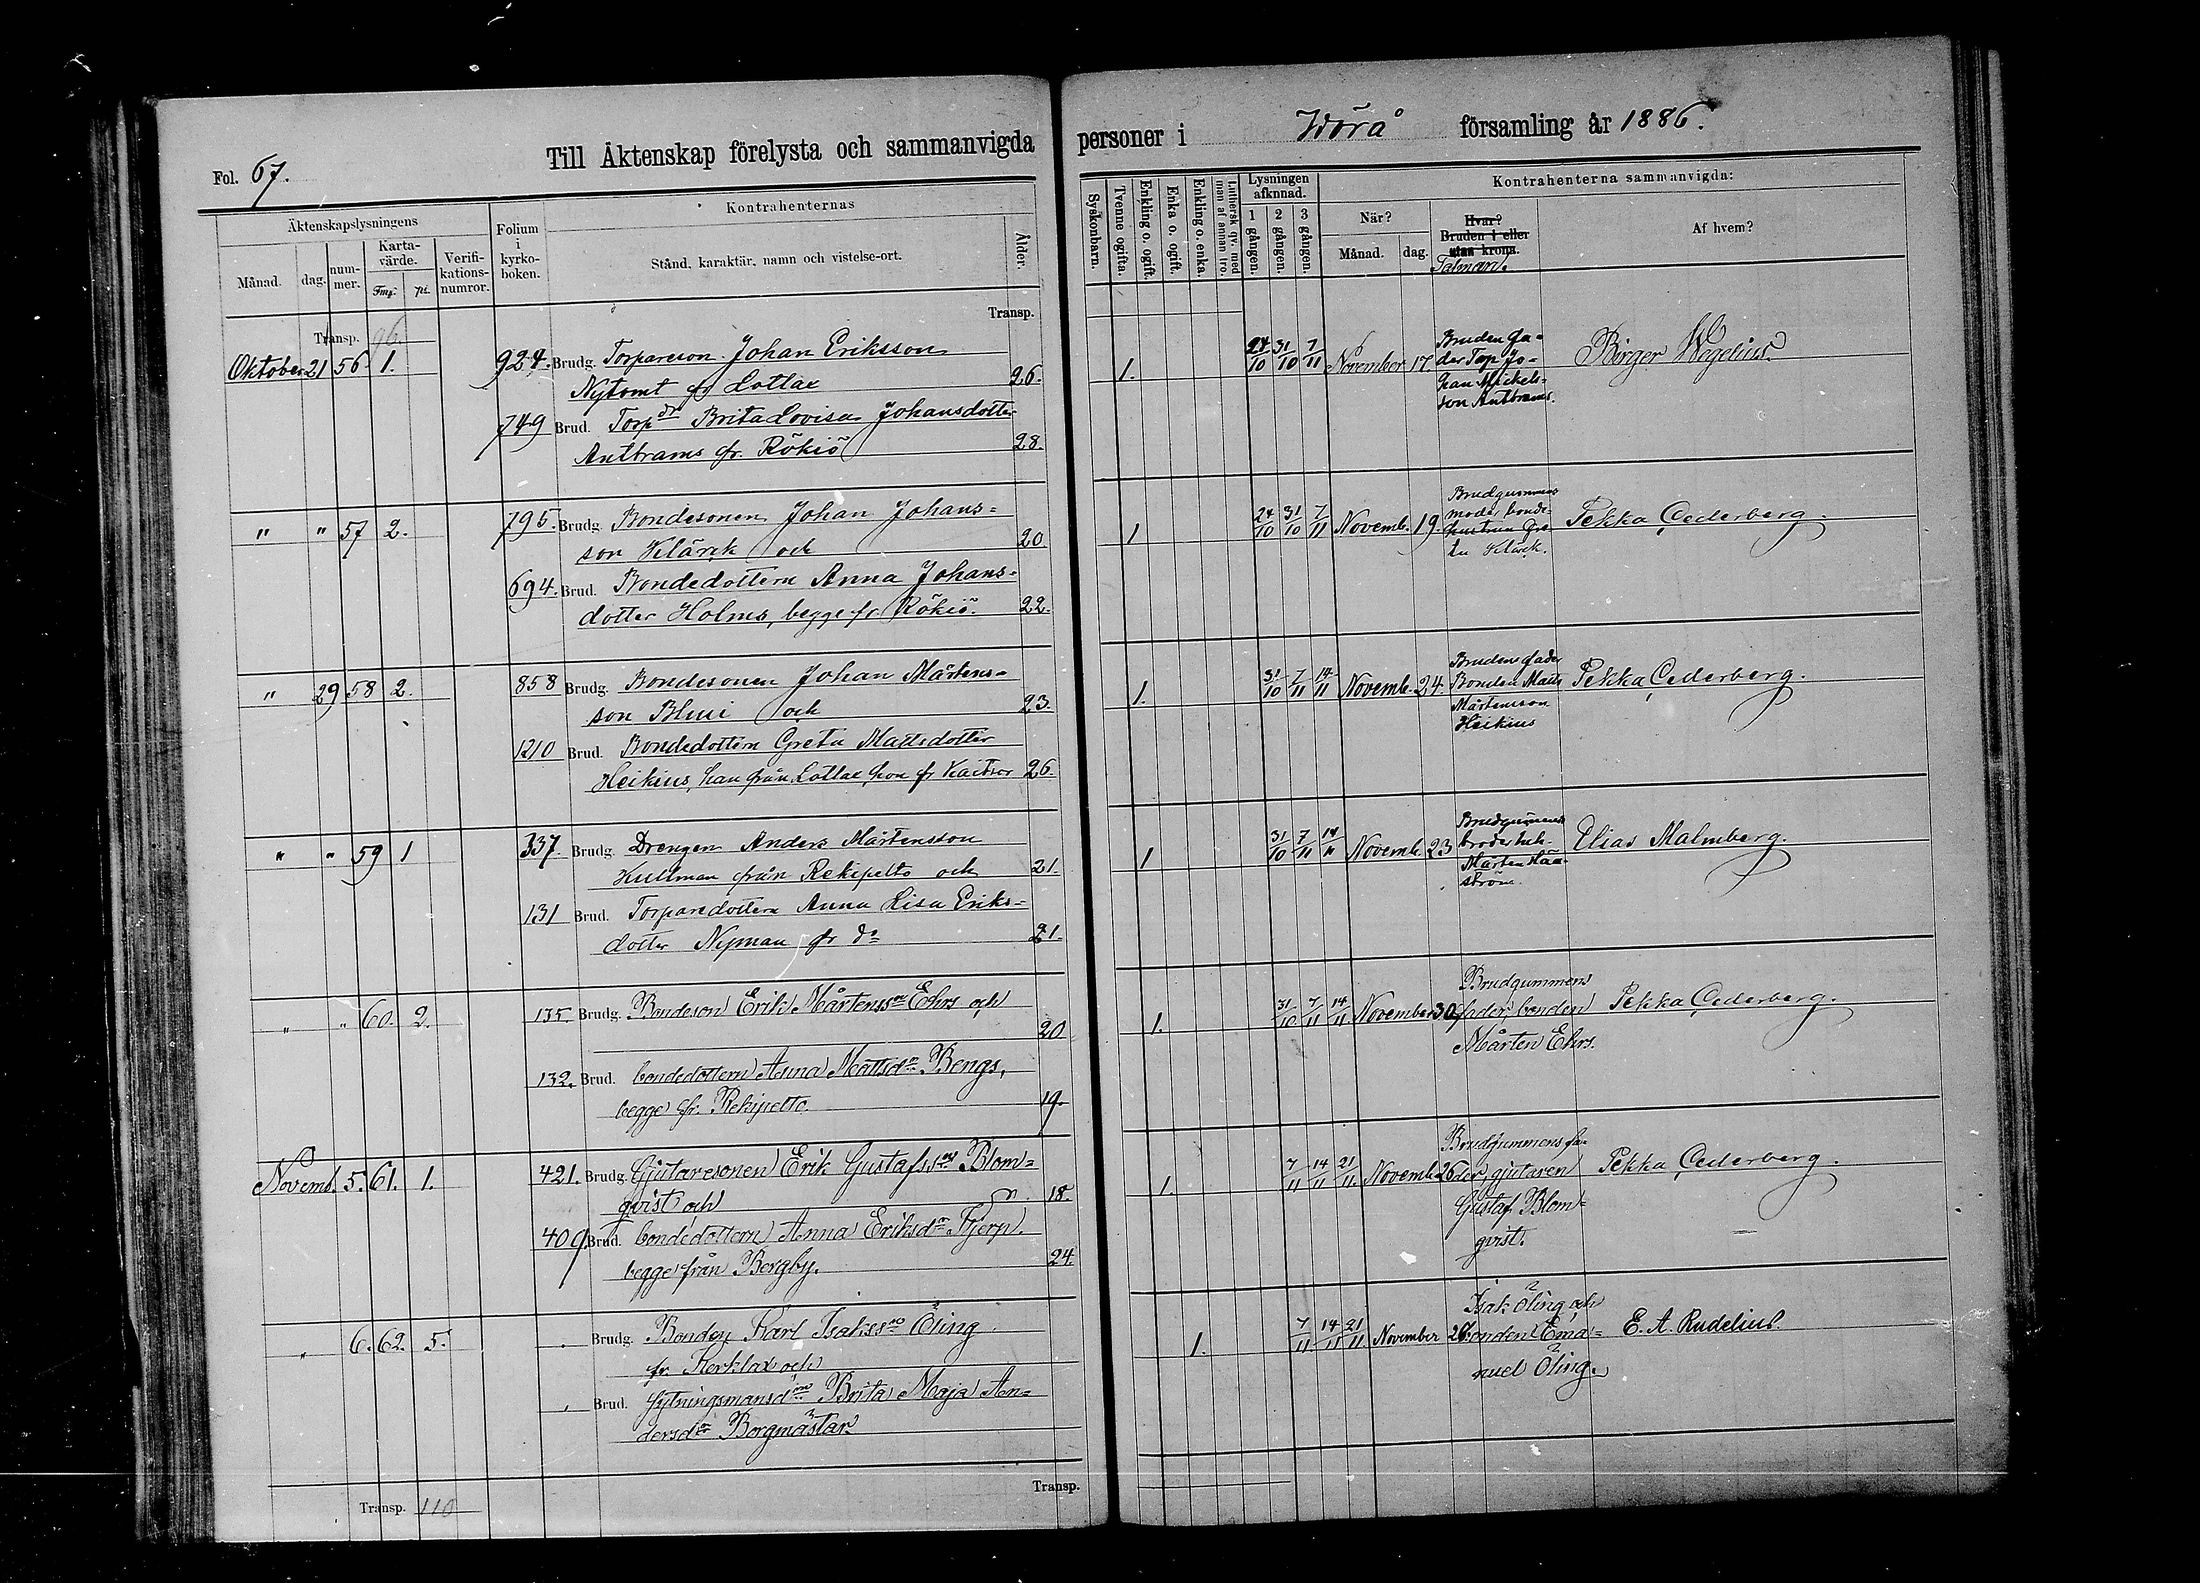 Fol. 67.
Till Äktenskap förelysta och sammanvigda personer i Wörå församling år 1886.
Äktenskapslysningens
Månad. dag. nummer. Kartavärde. Fmg: pi. Verifikationsnumror.
Folium i kyrkoboken.
Kontrahenternas
Stånd, karaktär, namn och vistelse-ort.
Ålder.
Syskonbarn. Tvenne ogifta. Enkling o. ogift. Enka o. ogift. Enkling o. enka. Luthersk qv. med man af annan tro.
Lysningen afknnad.
1 gången. 2 gången. 3 gången.
Kontrahenterna sammanvigda:
När? Månad. dag.
Hvar? Bruden i eller utan krona.
Talman.
Af hvem?
Transp. 96.
Transp.
Oktober 21 56 1. 924. Brudg. Torpareson Johan Eriksson
Nytomt fr Lotlax 26.
749 Brud. Torpdr Brita Lovisa Johansdotter
Antbrams fr. Rökiö 28.
1. 24/10 31/10 7/11 November 17
Bruden fa-
der Torp Jo-
han Mickels-
son Antbrams.
Birger Wegelius.
" " 57 2. 795. Brudg. Bondesonen Johan Johans=
son Klärck och 20
694. Brud. Bondedottern Anna Johans=
dotter Holms, begge fr Rökiö. 22.
1 24/10 31/10 7/11 Novemb. 19.
Brudgummens
moder bonde-
hustrun Gre-
ta Klärck.
Pekka Cederberg.
" 29 58 2. 858 Brudg. Bondesonen Johan Mårtens=
son Blusi och 23.
1210 Brud. Bondedottern Greta Mattsdotter
Heikius, han från Lotlax hon fr Kaitsor 26.
1. 31/10 7/11 14/11 Novemb. 24.
Brudens fader
Bonden Matts
Mårtensson
Heikius
Pekka Cederberg.
" " 59 1 337. Brudg. Drengen Anders Mårtensson
Kullman från Rekipelto och 21.
131 Brud. Torparedottern Anna Lisa Eriks=
dotter Nyman fr do 21.
1 31/10 7/11 14/11 Novemb. 23
Brudgummens
broder
Mårten
ström.
Elias Malmberg.
" " 60. 2. 135. Brudg. Bondeson Erik Mårtensson Ehrs och
20
132. Brud. bondedottern Anna Mattsdr Bengs,
begge fr. Rekipelto. 19.
1. 31/10 7/11 14/11 November 30
Brudgummens
fader, bonden
Mårten Ehrs.
Pekka Cederberg.
Novemb. 5. 61. 1. 421. Brudg. Gjutaresonen Erik Gustafsson Blom=
qvist och 18.
409. Brud. bondedottern Anna Eriksdr Kjerp.
begge från Bergby. 24.
1. 7/11 14/11 21/11 Novemb. 26
Brudgummens fa-
der, gjutaren
Gustaf Blom=
qvist.
Pekka Cederberg.
" 6. 62. 5. " Brudg. Bonden Karl Isaksson Öling
fr. Kerklax och
" Brud. Sytningsmansdrn Brita Maja An=
dersdr Borgmästar.
1. 7/11 14/11 21/11 November 27
Isak Öling och
bonden Ema=
nuel Öling.
E. A. Rudelius.
Transp. 110
Transp.